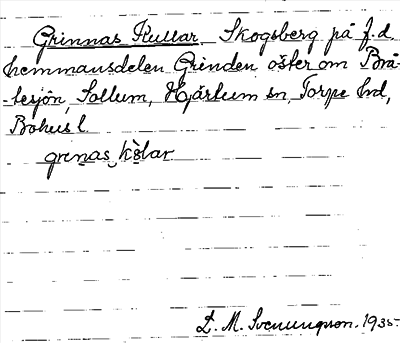 Grinnas Kullar. Skogsberg på f.d.
hemmansdelen Grinden öster om Brå-
-tesjön, Sollum, Hjärtum sn, Torpe hd,
Bohusl.
grenas kòlar
L. M. Svenungson. 1935.